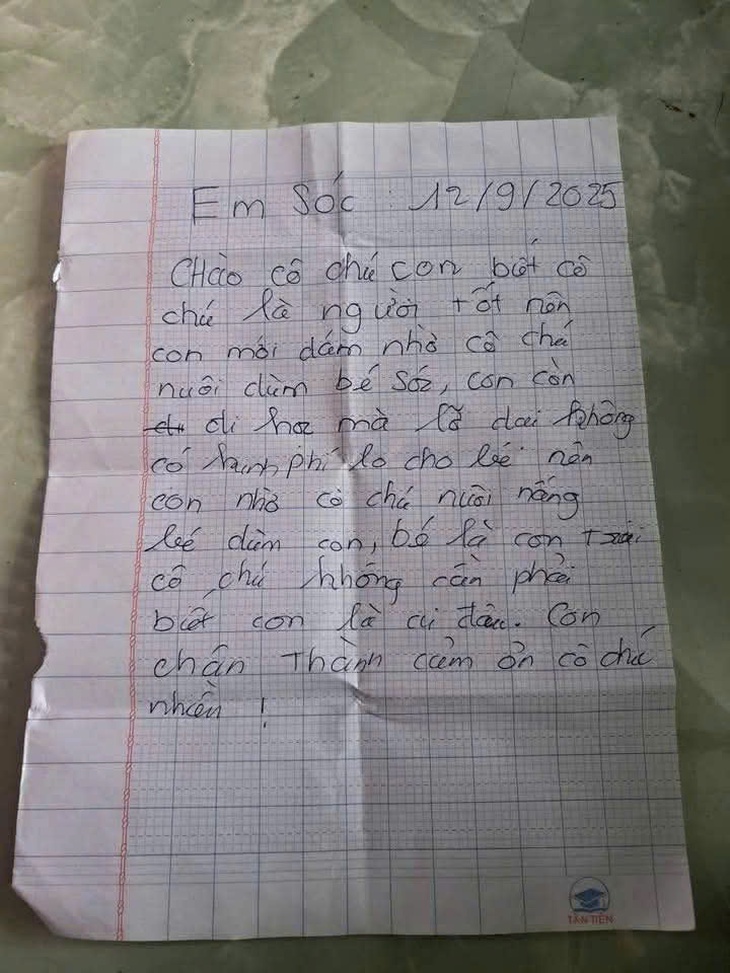 Em Sóc : 12/9/2025
CHào cô chú con biết cô
chú là người tốt nên
con mới dám nhờ cô chú
nuôi dùm bé Sóc, con còn
đi học mà lỡ dại không
có kinh phí lo cho bé nên
con nhờ cô chú nuôi nấng
bé dùm con, bé là con trai
cô chú không cần phải
biết con là ai đâu. Con
chân Thành cảm ơn cô chú
nhiều !
TÂN TIẾN